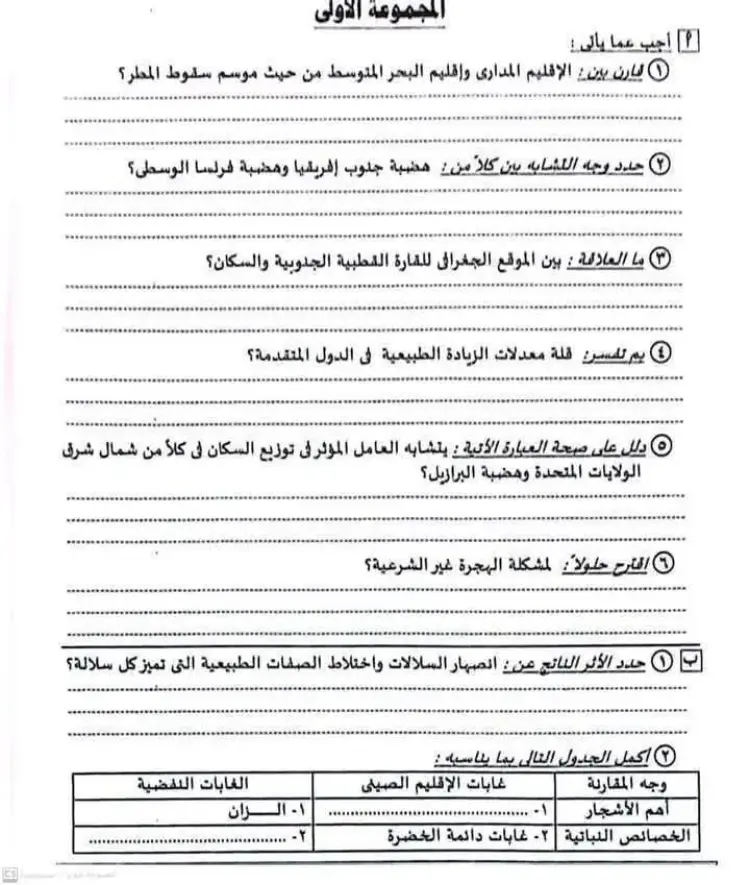 المجموعة الأولى
أ أجب عما يأتى :
١ قارن بين : الإقليم المدارى وإقليم البحر المتوسط من حيث موسم سقوط المطر؟
٢ حدد وجه التشابه بين كلاً من : هضبة جنوب إفريقيا وهضبة فرنسا الوسطى؟
٣ ما العلاقة : بين الموقع الجغرافى للقارة القطبية الجنوبية والسكان؟
٤ بم تفسر : قلة معدلات الزيادة الطبيعية فى الدول المتقدمة؟
٥ دلل على صحة العبارة الأتية : يتشابه العامل المؤثر فى توزيع السكان فى كلاً من شمال شرق
الولايات المتحدة وهضبة البرازيل؟
٦ اقترح حلولاً : لمشكلة الهجرة غير الشرعية؟
ب ١ حدد الأثر الناتج عن : انصهار السلالات واختلاط الصفات الطبيعية التى تميز كل سلالة؟
٢ أكمل الجدول التالى بما يناسبه :
وجه المقارنة غابات الإقليم الصينى الغابات النفضية
أهم الأشجار ١- .......................... ١- الـــزان
الخصائص النباتية ٢- غابات دائمة الخضرة ٢- ..........................
CS